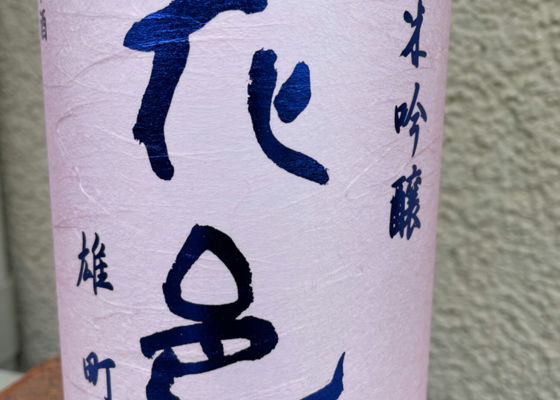 米吟醸
花邑
雄町
酒